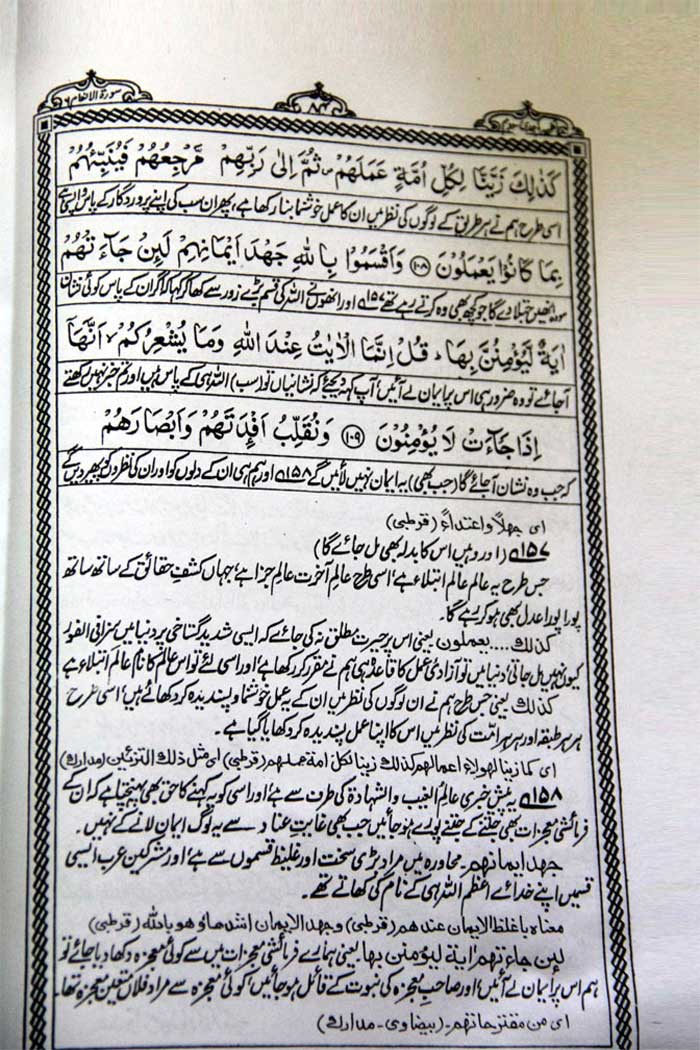 سورة الانعام ٦
٨٤
كَذٰلِكَ زَيَّنَّا لِكُلِّ اُمَّةٍ عَمَلَهُمْ ۪ ثُمَّ اِلٰى رَبِّهِمْ مَّرْجِعُهُمْ فَيُنَبِّئُهُمْ
اسی طرح ہم نے ہر طریق کے لوگوں کی نظر میں ان کا عمل خوشنما بنا رکھا ہے، پھر ان سب کی اپنے پروردگار کے پاس واپسی ہے
بِمَا كَانُوْا يَعْمَلُوْنَ ۝۱۰۸ وَاَقْسَمُوْا بِاللّٰهِ جَهْدَ اَيْمَانِهِمْ لَئِنْ جَآءَتْهُمْ
سو وہ انھیں جتلادے گا جو کچھ بھی وہ کرتے رہے تھے ۱۵۷ اور انھوں نے اللہ کی قسم بڑے زور سے کھا کر کہا کہ اگر ان کے پاس کوئی نشان
اٰيَةٌ لَّيُؤْمِنُنَّ بِهَا ؕ قُلْ اِنَّمَا الْاٰيٰتُ عِنْدَ اللّٰهِ وَمَا يُشْعِرُكُمْ ۙ اَنَّهَآ
آجائے تو وہ ضرور ہی اس پر ایمان لے آئیں، آپ کہہ دیجئے کہ نشانیاں تو (سب) اللہ ہی کے پاس ہیں اور تم خبر نہیں رکھتے
اِذَا جَآءَتْ لَا يُؤْمِنُوْنَ ۝۱۰۹ وَنُقَلِّبُ اَفْـِٕدَتَهُمْ وَاَبْصَارَهُمْ
کہ جب وہ نشان آجائے گا (جب بھی) یہ ایمان نہیں لائیں گے ۱۵۸ اور ہم بھی ان کے دلوں کو اور ان کی نظروں کو پھیر دیں گے
ای جھلاً واعتداءً (قرطبی)
۱۵۷ (اور وہیں اس کا بدلہ بھی مل جائے گا)
جس طرح یہ عالم عالم ابتلاء ہے، اسی طرح عالم آخرت عالم جزا ہے، جہاں کشف حقائق کے ساتھ ساتھ
پورا پورا عدل بھی ہو کر رہے گا۔
كذلك .... يعملون یعنی اس پر حیرت مطلق نہ کی جائے کہ ایسی شدید گستاخی پر دنیا میں سزا فی الفور
کیوں نہیں مل جاتی، دنیا میں تو آزادئ عمل کا قاعدہ ہی ہم نے مقرر کر رکھا ہے، اور اسی لئے تو اس عالم کا نام عالم ابتلاء ہے
كذلك یعنی جس طرح ہم نے ان لوگوں کی نظر میں ان کے یہ عمل خوشنما و پسندیدہ کر دکھائے ہیں، اسی طرح
ہر ہر طبقہ اور ہر ہر امت کی نظر میں اس کا اپنا عمل پسندیدہ کر دکھایا گیا ہے۔
ای كما زينا لهولاء اعمالهم كذلك زينا لكل امة عملهم (قرطبی) ای مثل ذلك التزئين (مدارك)
۱۵۸ یہ پیش خبری عالم الغیب والشہادۃ کی طرف سے ہے، اور اسی کو یہ کہنے کا حق بھی پہنچتا ہے کہ ان کے
فرمائشی معجزات بھی جتنے کے جتنے پورے ہو جائیں جب بھی غایت عناد سے یہ لوگ ایمان لانے کے نہیں۔
جهد ايمانهم۔ محاورہ میں مراد بڑی سخت اور غلیظ قسموں سے ہے، اور مشرکین عرب ایسی
قسمیں اپنے خدائے اعظم اللہ ہی کے نام کی کھاتے تھے۔
معناه باغلظ الايمان عندهم (قرطبی) وجهد الايمان اشدها وهو بالله (قرطبی)
لئن جاءتهم اية ليؤمنن بها۔ یعنی ہمارے فرمائشی معجزات میں سے کوئی معجزہ دکھا دیا جائے تو
ہم اس پر ایمان لے آئیں، اور صاحب معجزہ کی نبوت کے قائل ہو جائیں، کوئی معجزہ سے مراد فلاں متعین معجزہ تھا۔
ای من مقترحاتهم۔ (بیضاوی۔ مدارك)